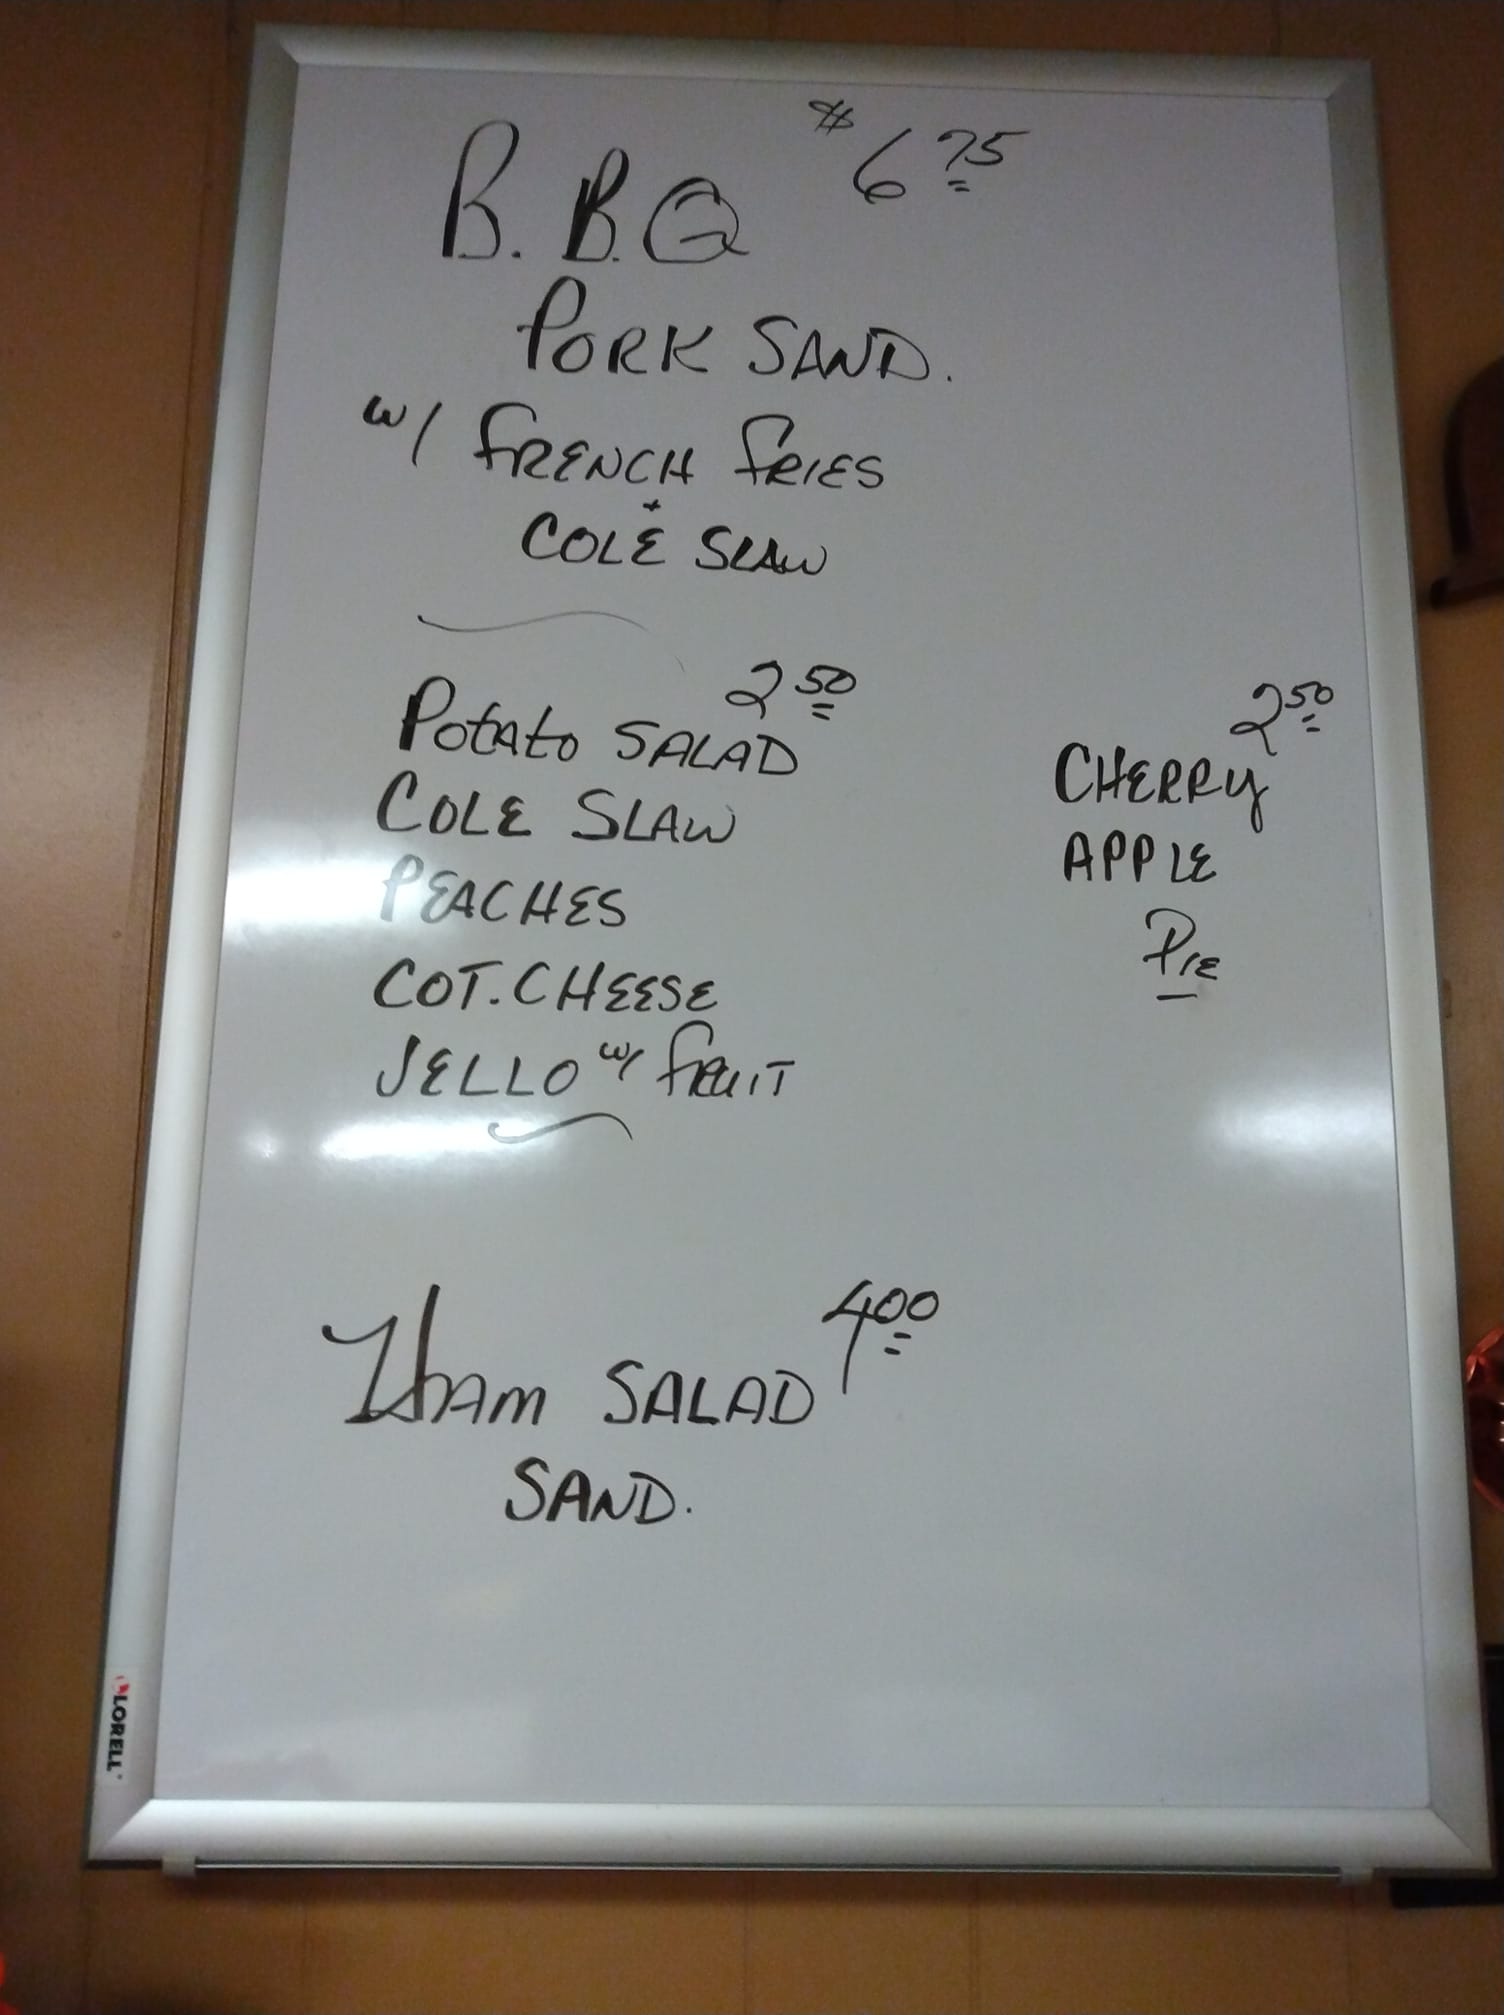 $6.75
B.B.Q
PORK SAND.
w/ FRENCH FRIES
+
COLE SLAW
2.50
POTATO SALAD
COLE SLAW
PEACHES
COT. CHEESE
JELLO w/ FRUIT
2.50
CHERRY
APPLE
PIE
4.00
HAM SALAD
SAND.
LORELL